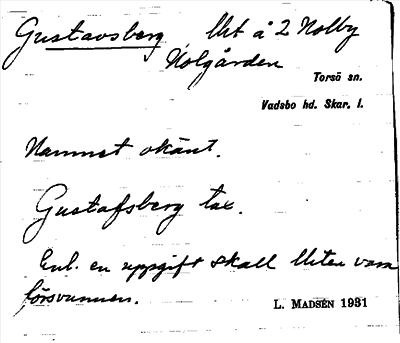 Gustavsberg lht å 2 Nolby
Nolgården
Torsö sn.
Vadsbo hd. Skar. l.
Namnet okänt.
Gustafsberg tax.
Enl. en uppgift skall lhten vara
försvunnen.
L. MADSÉN 1931